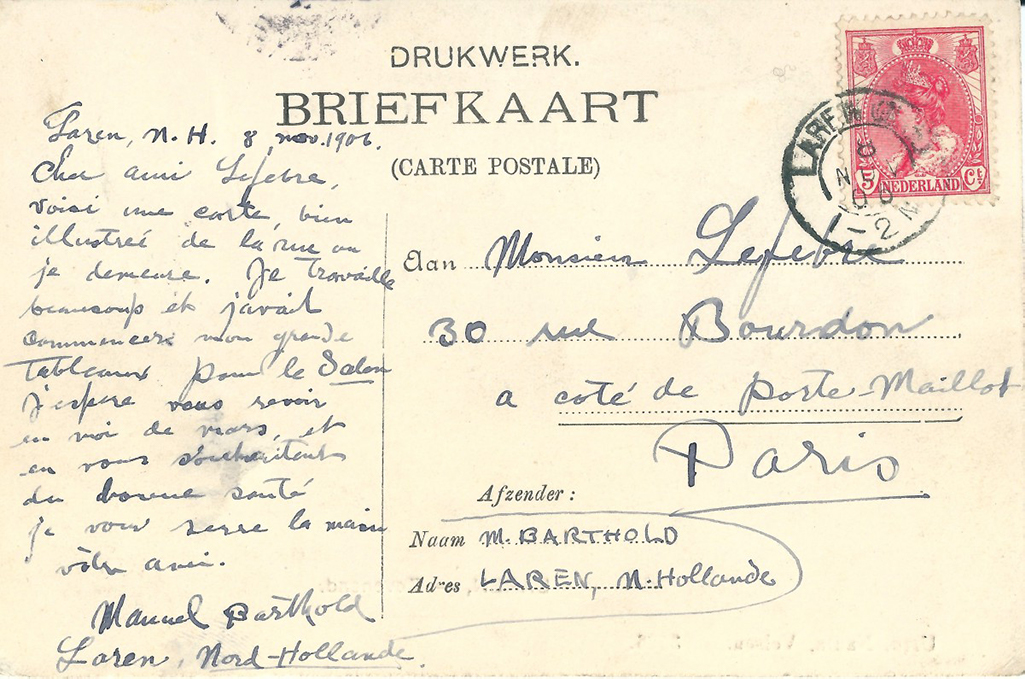 DRUKWERK.
BRIEFKAART
(CARTE POSTALE)
Laren, N.H. 8 nov. 1906.
Cher ami Lefebre,
voici une carte bien
illustreé de la rue ou
je demeure. Je travaille
beaucoup et javait
commencer mon grande
Tableaux pour le Salon
J'espere vous revoir
en moi de mars, et
en vous souhaitent
du bonne santé
je vous serre la main
vôtre ami.
Manuel Barthold
Laren, Nord-Hollande.
5 Ct.
NEDERLAND
LAREN
8 NOV 06
1-2 N
Aan Monsieur Lefebre
30 rue Bourdon
a coté de porte-Maillot
Paris
Afzender:
Naam M. BARTHOLD
Adres LAREN, N. Hollande